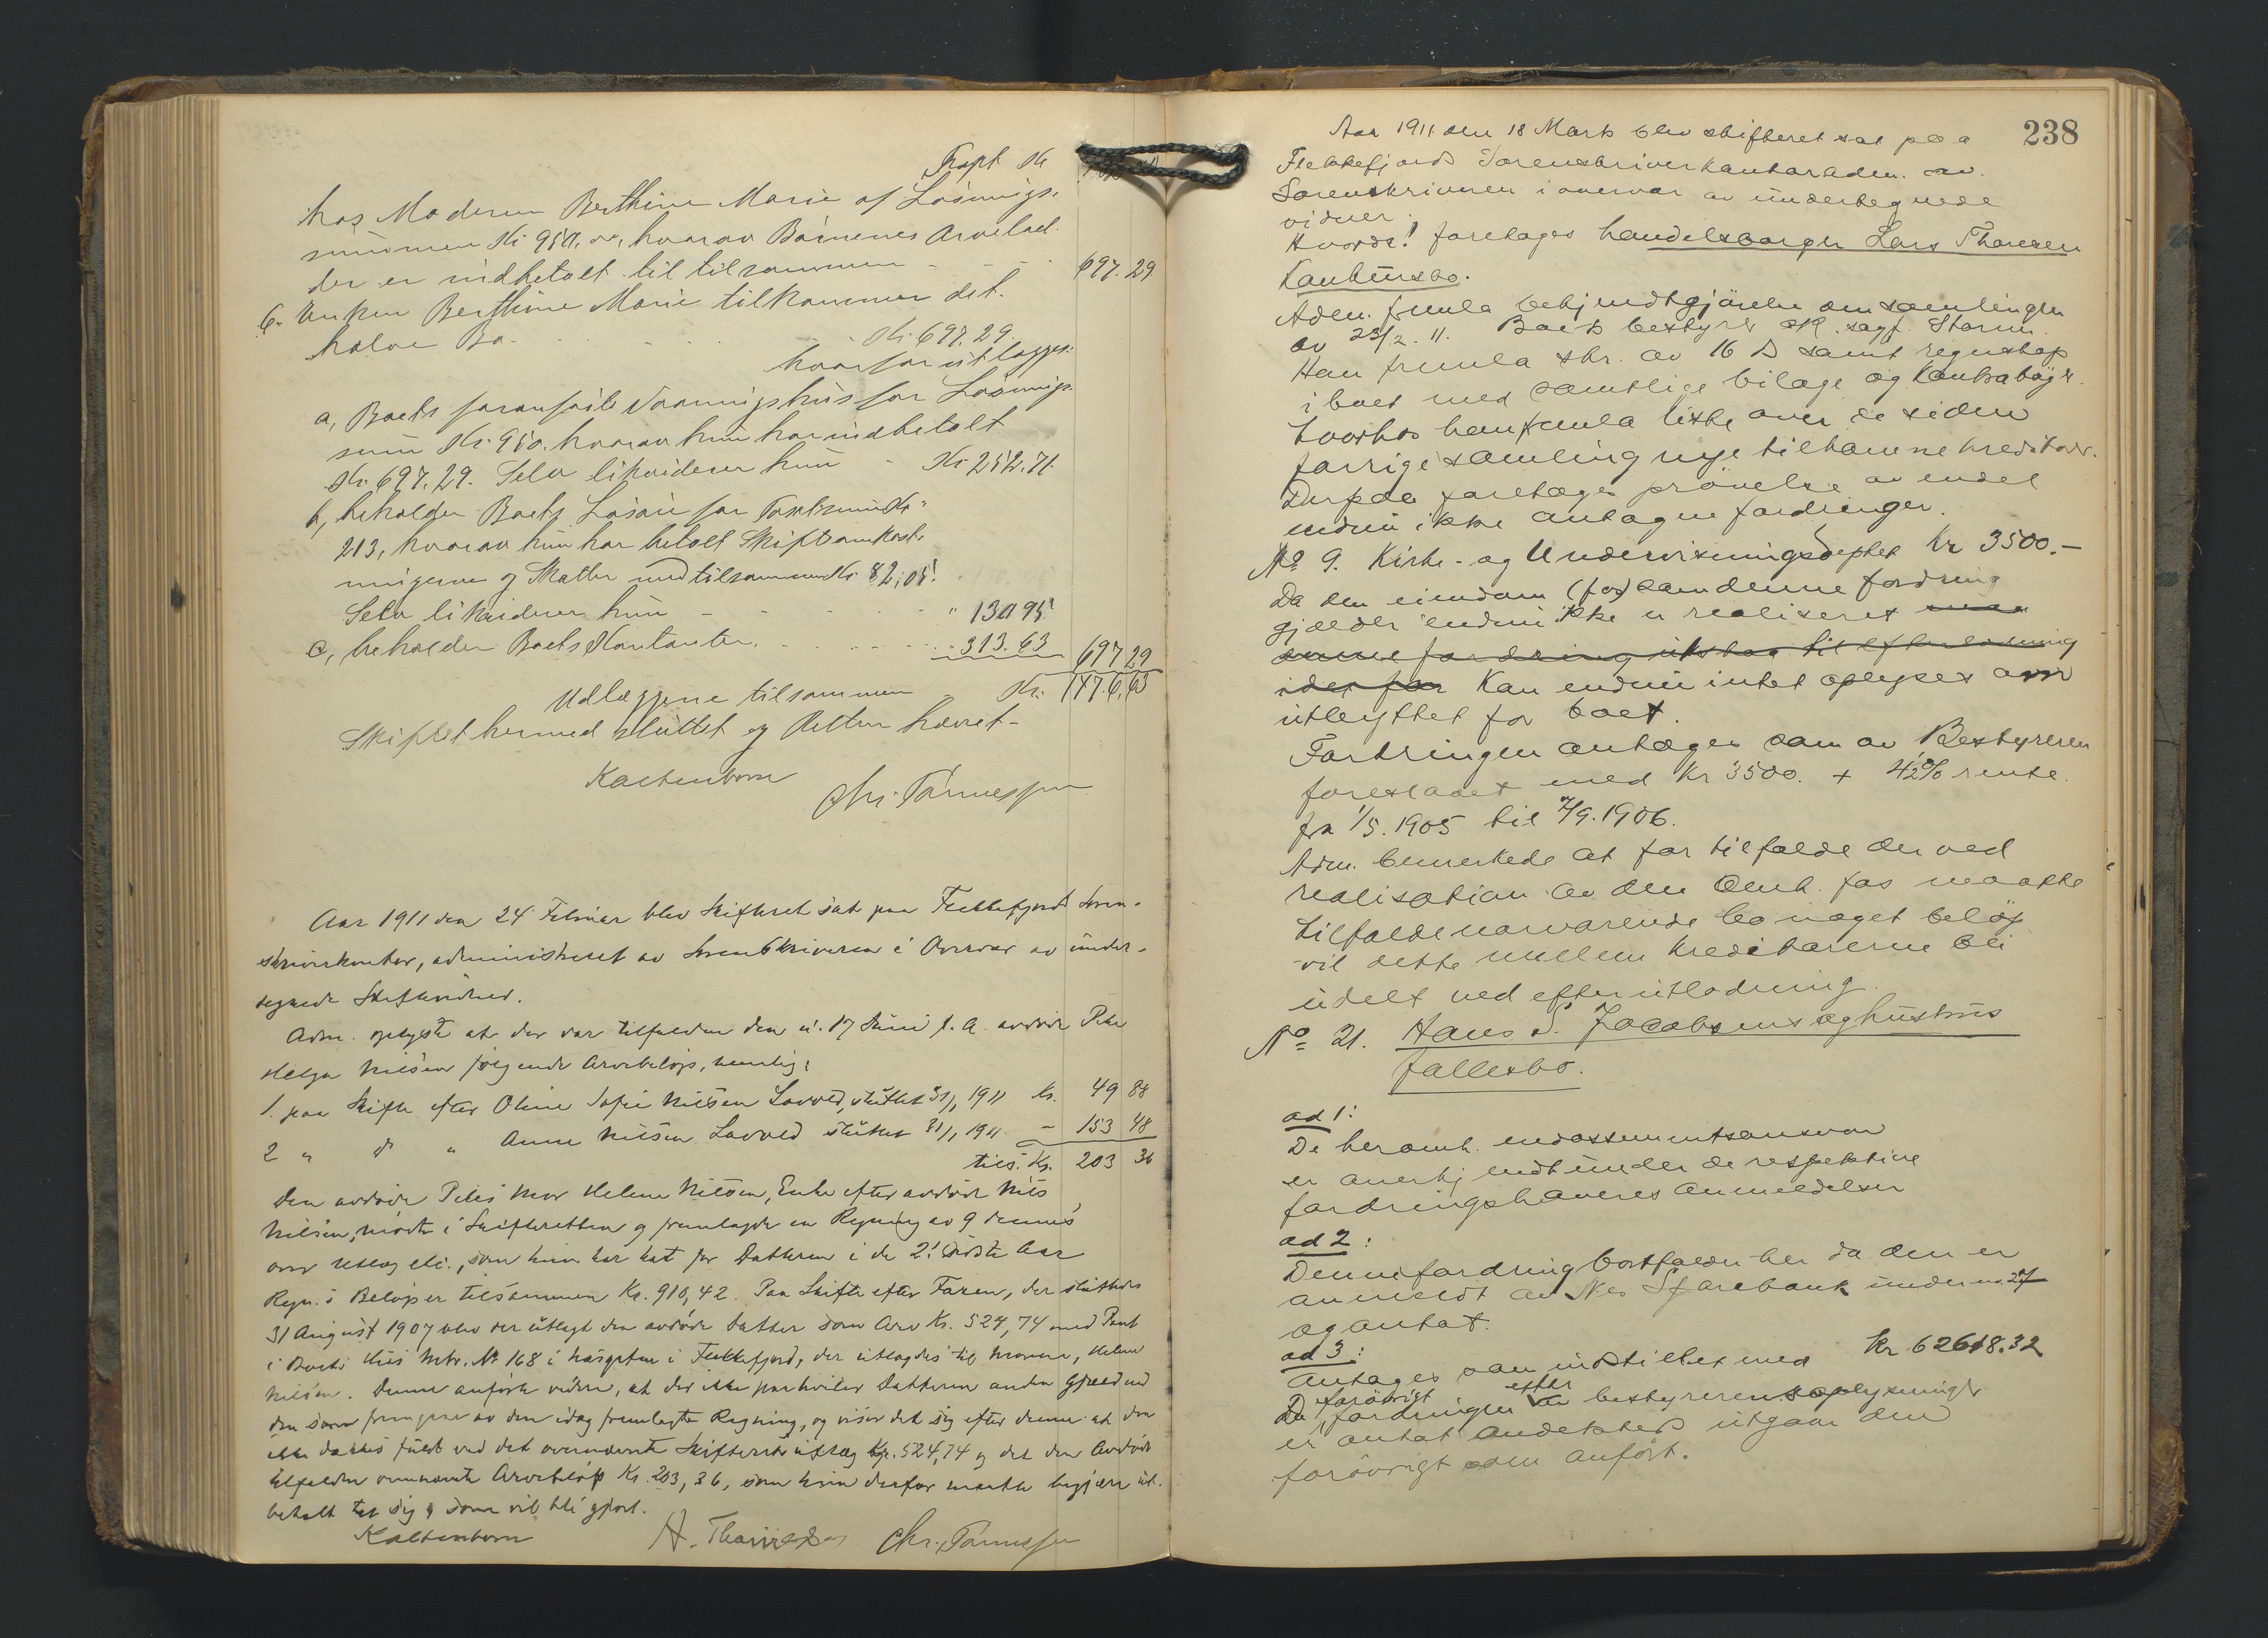 Trspt Kr
hos Moderen Berthine Marie af Løsnings-
summen Kr 950,00, hvorav Børnenes Arvelod-
der er indbetalt til tilsammen - - - 697.29
6. Enken Berthine Marie tilkommer det
halve Bo - - - - Kr. 697.29
hvorfor utlægges:
a, Boets foranførte Vaaningshus for Løsnings-
sum Kr. 950. hvorav hun har indbetalt
Kr. 697.29. Selv likviderer hun - Kr 252.71.
b, beholder Boets Løsøre for Taxtsum Kr.
213, hvorav hun har betalt Skifteomkost-
ningerne og Skatter med tilsammen Kr. 82,05.
Selv likviderer hun - - - - - " 130 95
c, beholder Boets Kontanter. - - - - - 313.63 697 29
Udlæggene tilsammen - Kr. 1476,63
Skiftet hermed sluttet og Retten hævet -
Kaltenborn Chr. Tønnessen
Aar 1911 den 24 Februar blev Skifteret sat paa Flekkefjords Soren-
skriverkontor, administreret av Sorenskriveren i Overvær av under-
tegnede Skiftevidner.
Adm. oplyste at der var tilfalden den 17 Juni f. A. avdøde Petra
Helga Nilsen følgende Arvebeløp, nemlig:
1. paa Skifte efter Oline Sofie Nilsen Lavold, sluttet 31/1 1911 Kr. 49 88
2 " d " Anne Nilsen Lavold sluttet 31/1 1911 - 153 48
tils. Kr. 203 36
Den avdøde Petras Mor Helene Nilsen, Enke efter avdøde Nils
Nilsen, mødte i Skifteretten og fremlagde en Regning av 9 dennes
over Utlæg etc., som hun har hat for Datteren i de 2 sidste Aar
Regn.s Beløp er tilsammen Kr. 910,42. Paa Skifte efter Faren, der sluttedes
31 August 1907 blev der utlagt den avdøde Datter som Arv Kr. 524,74 med Pant
i Boets Hus Mtr. No 168 i Flekkefjord, der utlagdes til Moren, Helene
Nilsen. Denne anførte videre, at der ikke paahviler Datteren anden Gjæld end
den som fremgaar av den idag fremlagte Regning, og viser det sig efter denne at den
ikke dækkes fuldt ved det ovennævnte Skifterets utlæg Kr. 524,74 og det den Avdøde
tilfaldne ovennævnte Arvebeløp Kr. 203,36, som hun derfor maatte begjære ut-
betalt til sig, som vil bli gjort.
Kaltenborn Chr. Tønnessen
238
Aar 1911 den 18 Marts blev skifteret sat paa
Flekkefjords Sorenskriverkontor adm. av
Sorenskriveren i overvær av undertegnede
vidner.
Hvorda! foretages handelsborger Lars Thoresen
konkursbo.
Adm. fremla bekjendtgjørelse om samlingen
av 23/2 11. Boets bestyrer OR. sagf. Storm.
Han fremla skr. av 16 ds samt regnskap
i boet med samtlige bilage og kontrabøger.
Hvorhos han fremla liste over de siden
forrige samling nye tilkomne kreditorer.
Derpaa foretages prøvelse av endel
endnu ikke antagne fordringer.
No 9. Kirke- og Undervisningsdeptet Kr 3500.-
Da den eiendom (for) som denne fordring
gjælder endnu ikke er realiseret
denne fordring utstaa til efterlodning
idet for Kan endnu intet oplyses om
utbyttet for boet.
Fordringen antages som av Bestyreren
foreslaaet med Kr 3500. + 4½% rente
fra 1/5.1905 til 7/9.1906.
Adm. bemerkede at for tilfælde der ved
realisation av den omh. fos maatte
tilfalde nærværende bo noget beløp
vil dette mellem kreditorerne bli
utdelt ved efterutlodning.
No 21. Hans S. Jacobsens og hustrus
fællesbo.
ad 1:
De heromh. endossementsansvar
er anerkjendt under de respektive
fordringshaveres anmeldelser
ad 2:
Denne fordring bortfalder her da den er
anmeldt av Nes Sparebank under no. 27
og antat.
ad 3:
Antages som indstillet med Kr 62618.32
Da forøvrigt fordringen efter bestyrerens oplysninger
er antat andetsteds utgaar den
forøvrigt som anført.